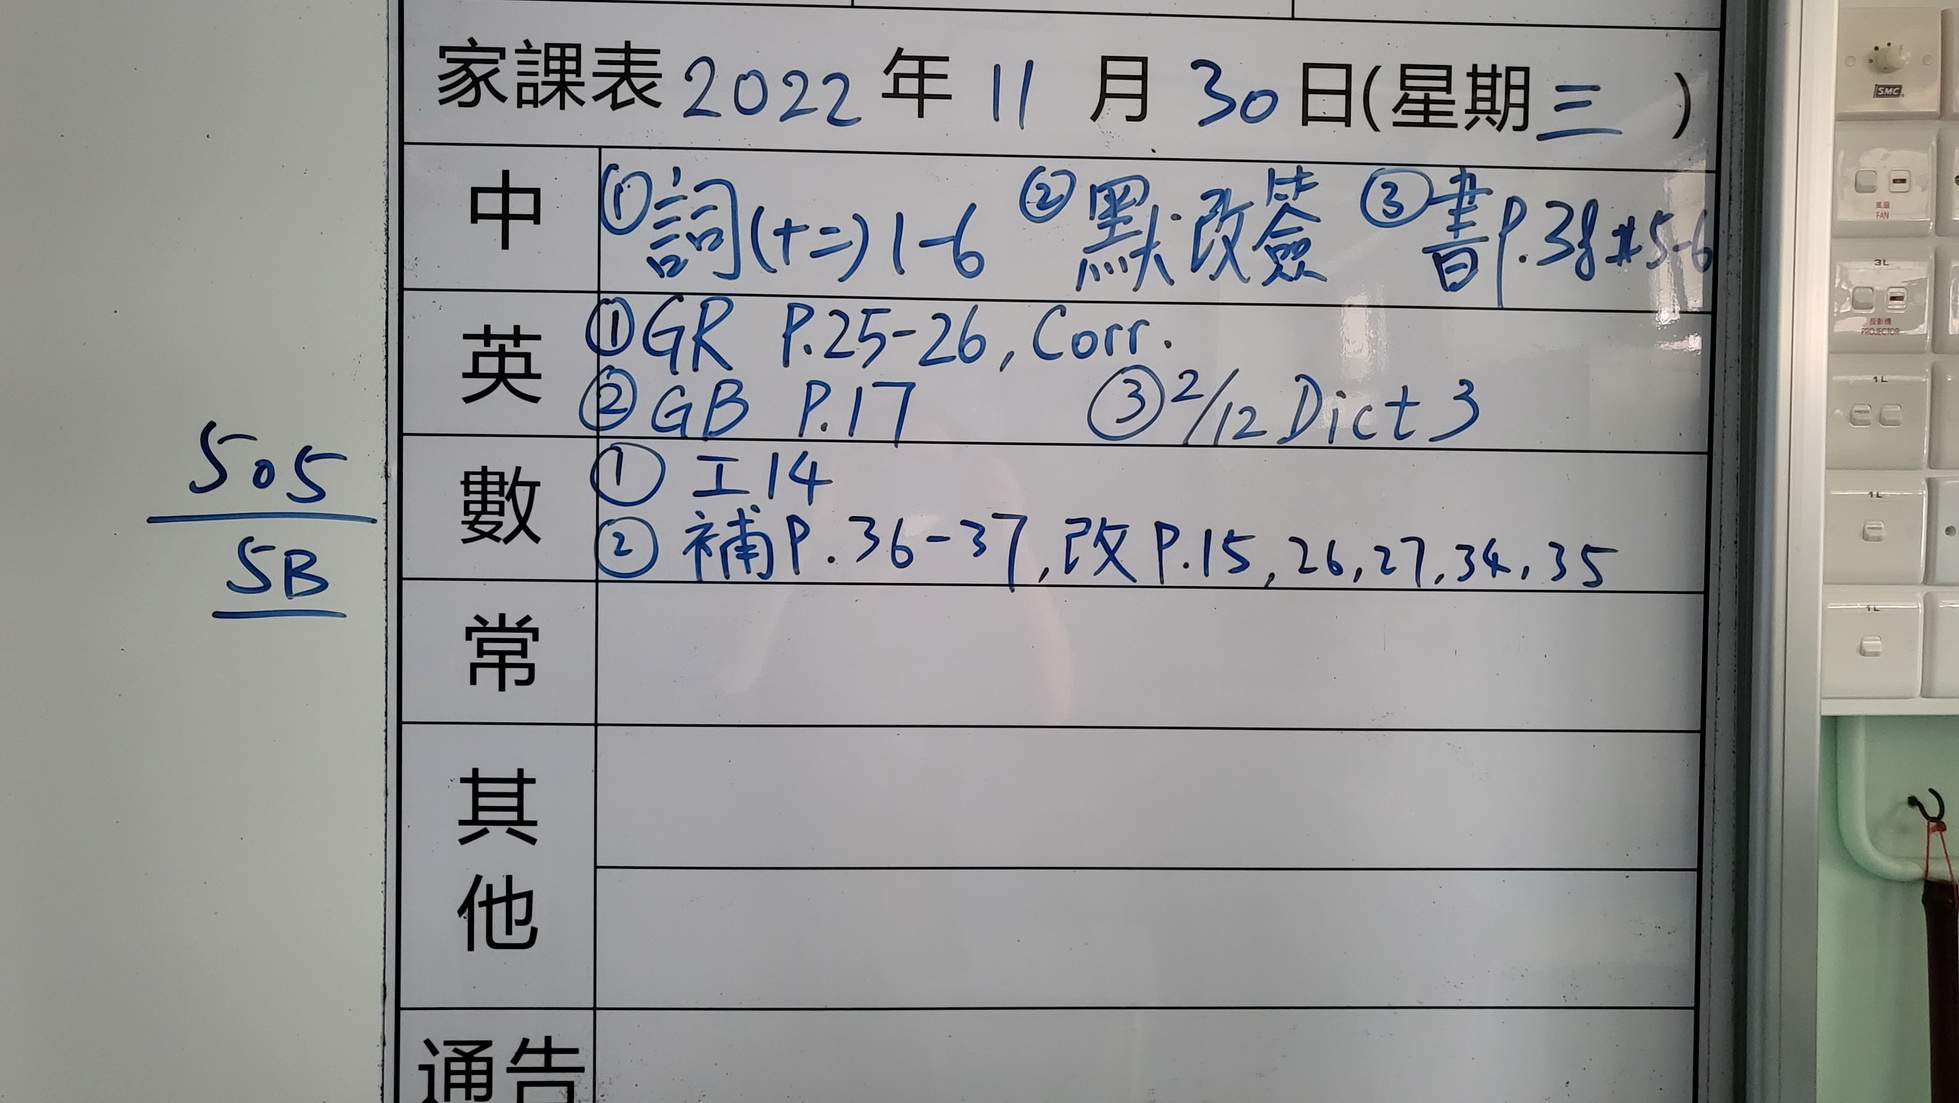 家課表 2022 年 11 月 30 日(星期三 )
中 ①詞(十二)1-6 ②默改簽 ③書P.38#5-6
英 ①GR P.25-26, Corr.
②GB P.17 ③2/12 Dict 3
數 ①工14
②補P.36-37,改P.15,26,27,34,35
常
其他
通告
505
5B
SMC
風扇
FAN
3L
投影機
PROJECTOR
1L
1L
1L